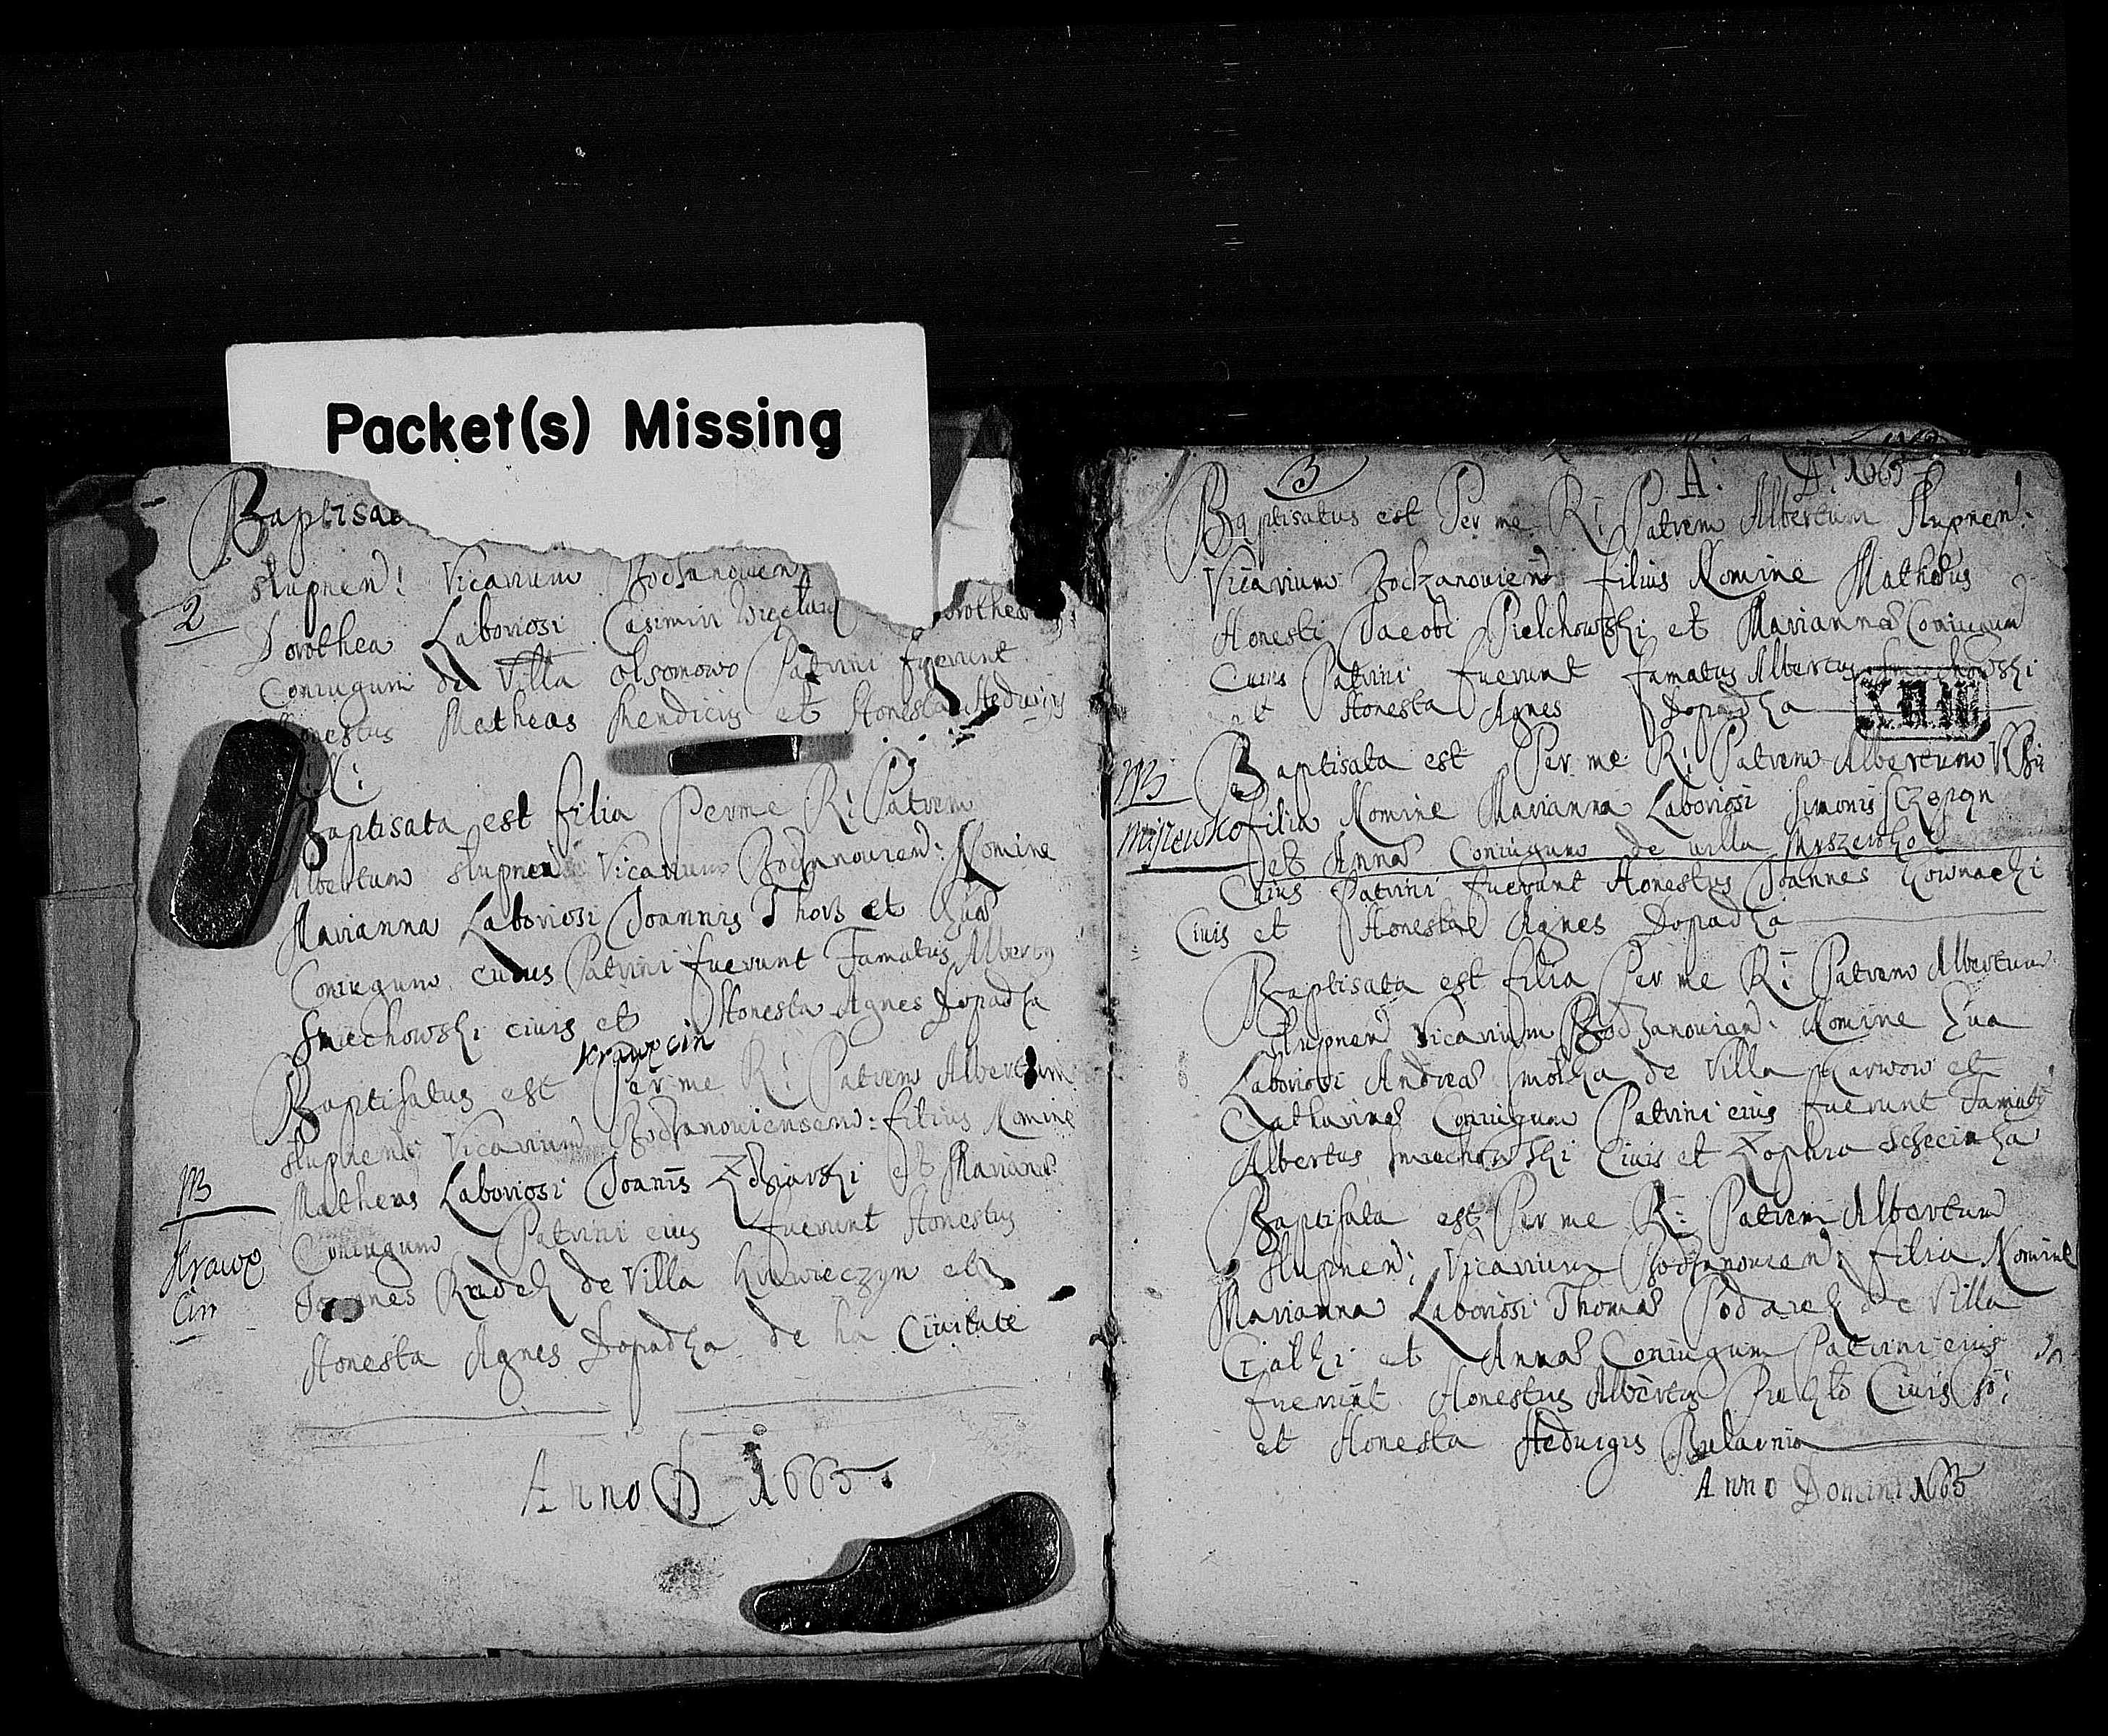 Packet(s) Missing
Baptisa
2
slupnen: Vicarium Bodzanovien
Dorothea Laboriosi Casimiri orothea
Coniugum de Villa olsonowo Patrini fuerunt
nestus Matheas Rendicius et Honesta Hedwigis
Baptisata est filia Per me R: Patrem
Albertum slupnen Vicarium Bodzanovien: Nomine
Marianna Laboriosi Joannis Thois et Euae
Coniugum cuius Patrini fuerunt Famatus Albertus
Smechowski ciuis et Honesta Agnes Dopadka
Krawęcin
Baptisatus est Per me R: Patrem Albertum
slupnen: Vicarium Bodzanoviensem: filius Nomine
NB
Matheas Laboriosi Joanis Zdziarski et Mariana
Krawę
cin
Coniugum Patrini eius fuerunt Honestus
Joannes Rudek de Villa et
Honesta Agnes Dopadka de ha Ciuitate
Anno D 1665
3 A: D: 1665
Baptisatus est Per me R: Patrem Albertum slupnen:
Vicarium Bodzanovien filius Nomine Matheus
Honesti Jacobi Pielchowski et Marianna Coniugum
Cuius Patrini fuerunt famatus Albertus Smiechowski
et Honesta Agnes Dopadka
NB
Baptisata est Per me R: Patrem Albertum
Miszewko
filia Nomine Marianna Laboriosi Simonis Sczepan
et Annae Coniugum de villa Myszewko
Cuius Patrini fuerunt Honestus Joannes Kownacki
Ciuis et Honesta Agnes Dopadka
Baptisata est filia Per me R: Patrem Albertum
slupnen Vicarium Bodzanovien: Nomine Eua
Laboriosi Andreae Smolka de Villa Karwow et
Catharinae Coniugum Patrini eius fuerunt Famatus
Albertus Smiechowski Ciuis et Zophia
Baptisata est Per me R: Patrem Albertum
slupnen: Vicarium Bodzanovien: filia Nomine
Marianna Laboriosi Thomae Podarek de Villa
Gialki et Annae Coniugum Patrini eius
fuerunt Honestus Albertus Ciuis
et Honesta Hedwigis
Anno Domini 1665